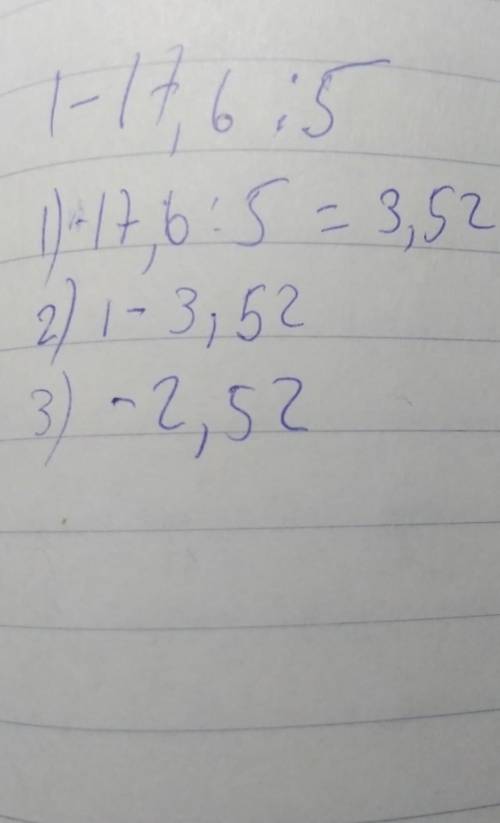 1-17,6:5
1) -17,6:5 = 3,52
2) 1-3,52
3) -2,52